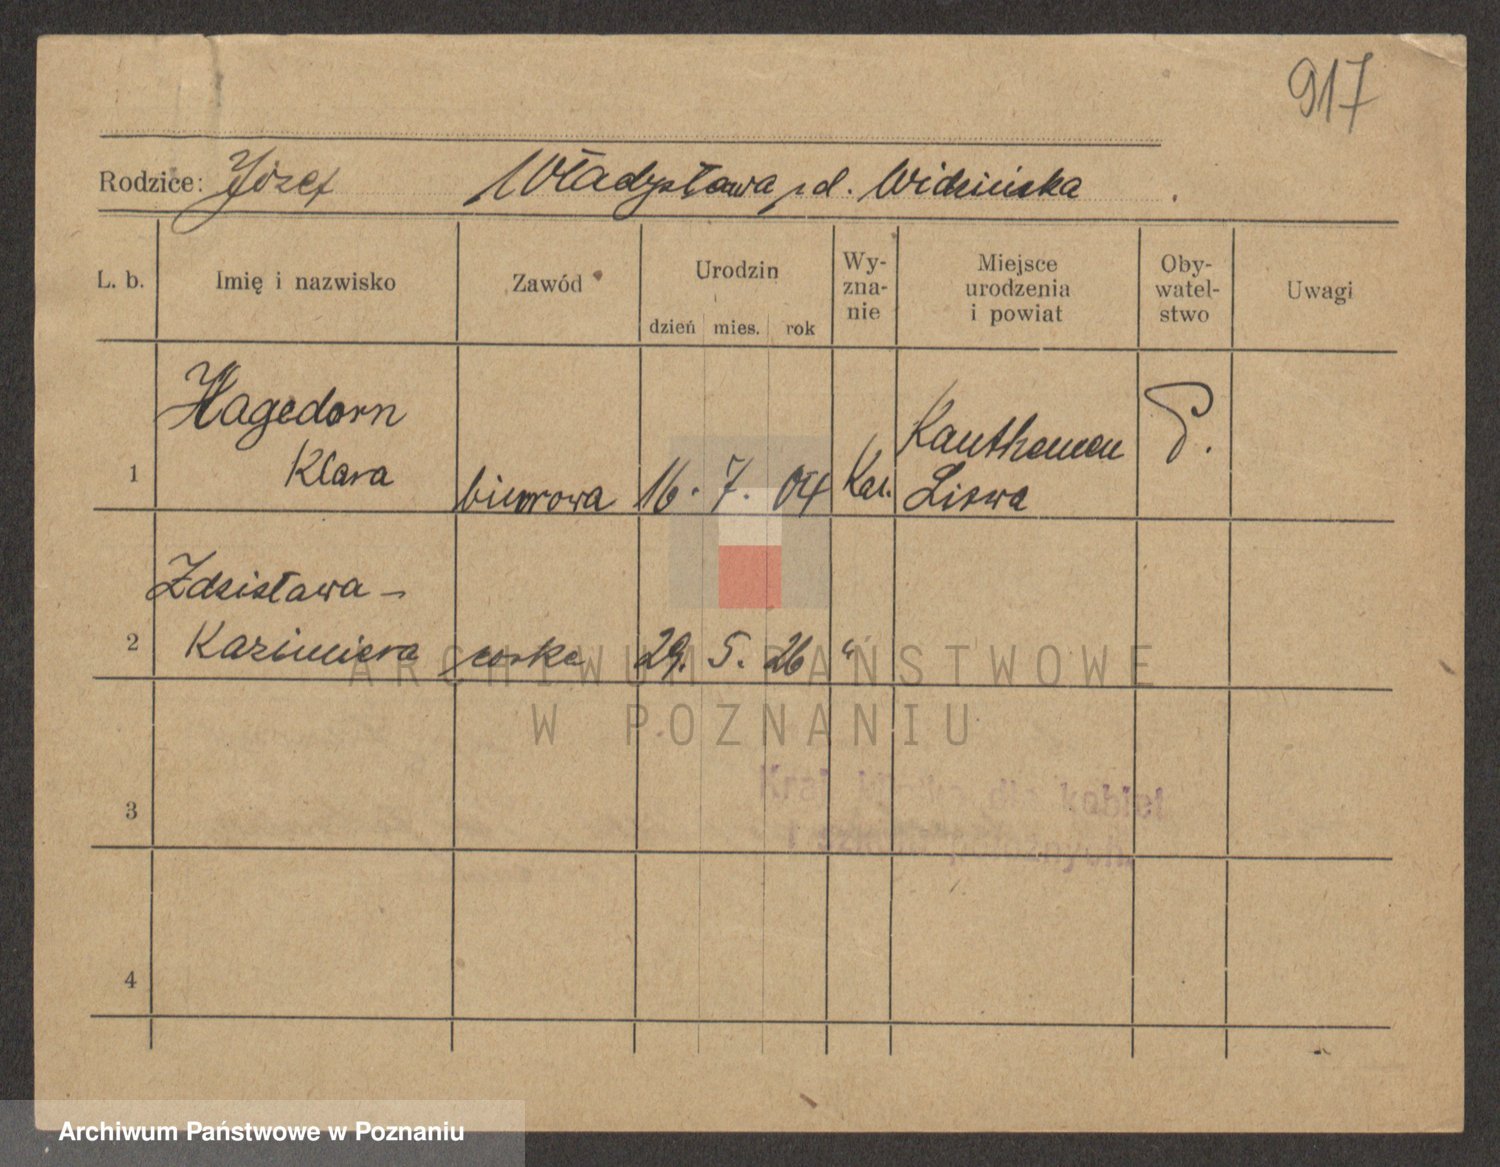 917
Rodzice: Józef Władysława z d. Widzińska
L. b. Imię i nazwisko Zawód Urodzin Wy-
zna-
nie Miejsce
urodzenia
i powiat Oby-
watel-
stwo Uwagi
dzień mies. rok
Hagedorn
1 Klara biurowa 16. 7. 04 Kat. Liswa P.
Zdzisława -
2 Kazimiera córka 29. 5. 26 "
ARCHIWUM PAŃSTWOWE
W POZNANIU
dla kobiet
położnych
3
4
Archiwum Państwowe w Poznaniu